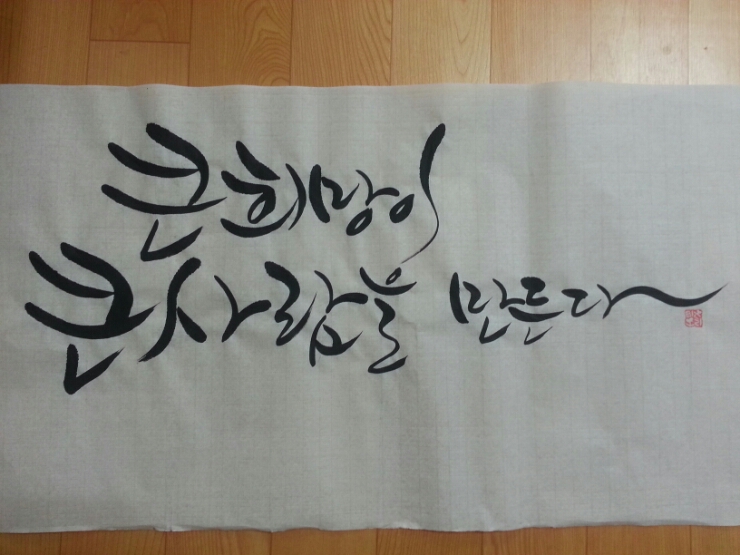 큰 희망이
큰 사람을 만든다